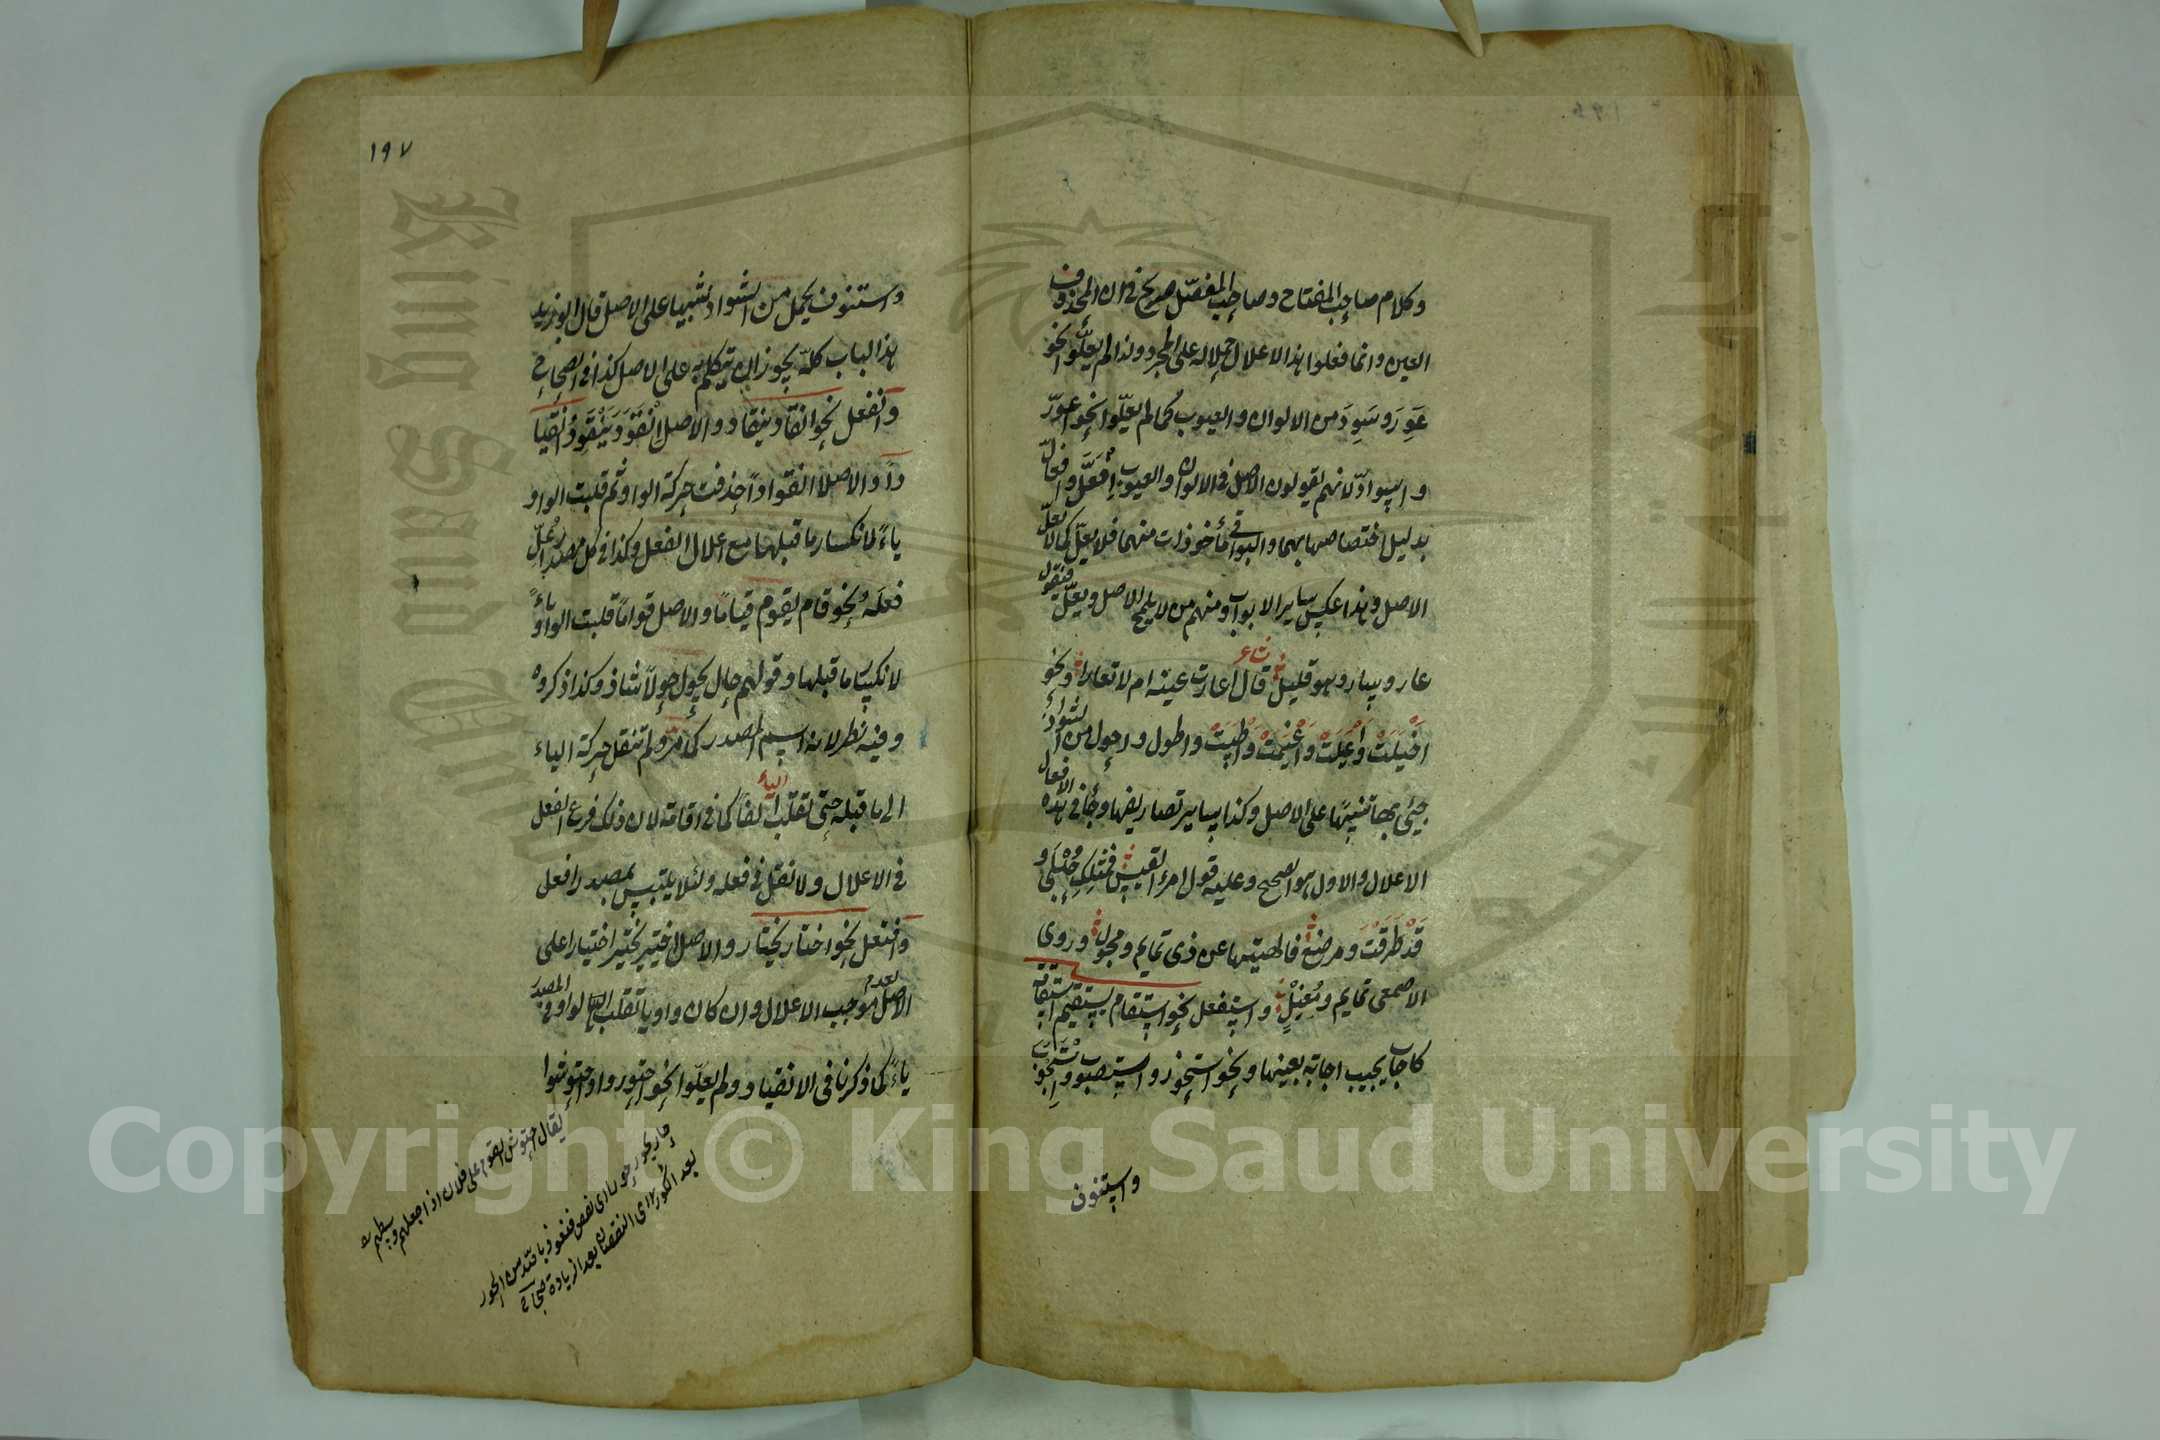 وكلام صاحب المفتاح وصاحب المفصّل صريح في ان المحذوف
العين وانما فعلوا هذا الاعلال حملا له على المجرد ولذا لم يعلّوا نحو
عَوِرَ وسَوِدَ من الالوان والعيوب كما لم يعلّوا نحو اعورّ
واسوادّ لانهم يقولون الاصل في الالوان والعيوب اِفْعَلَّ وافعالّ
بدليل اختصاصها بهما والبواقي مأخوذات منهما فلا يعلّ كما لا يعلّ
الاصل وهذا عكس ساير الابواب ومنهم من لا يلمح الاصل ويعلّ فيقول
عار وسار وهو قليل قال شاعر اعارت عينه ام لا تعارا ونحو
اخْيَلَتْ واَغْيَلَتْ واَغْيَمَتْ واَطْيَبَتْ واطول واحول من الشواذّ
جيئ بها تنبيهًا على الاصل وكذا ساير تصاريفها وجاء في هذه الافعال
الاعلال والاول هو الصحيح وعليه قول امرء القيس فمثلِكِ حُبْلى و
قَدْ طَرَقْتَ ومرضع فالهيتها عن ذى تمايم ومحول وروى
الاصمعى تمايم ومُغيَلٍ واستفعل نحو استقام يستقيم استقامة
كاجاب يجيب اجابة بعينها ونحو استحوذ واستصوب واستجوب
واستنوق
١٩٧
واستنوق يحمل من الشواذ تنبيها على الاصل قال ابو زيد
هذا الباب كلّه يجوز ان يتكلم به على الاصل كذا في الصحاح
وانفعل نحو انقاد ينقاد والاصل اِنْقَوَدَ يَنْقَوِدُ انقيا
دًا والاصل انقوادًا حذفت حركة الواو ثم قلبت الواو
ياءً لانكسار ما قبلها مع اعلال الفعل وكذا في كل مصدر اُعلّ
فعله نحو قام يقوم قيامًا والاصل قوامًا قلبت الواو ياءً
لانكسار ما قبلها وقولهم حال يحول حولًا شاذ وكذا ذكروه
وفيه نظر لانه اسم المصدر كما مرّ ولم تنقل حركة الياء
الى ما قبله حتى تقلب الياء الفًا كما في اقامة لان ذلك فرع الفعل
في الاعلال ولا نقل في فعله ولئلا يلتبس بمصدر افعل
وافتعل نحو اختار يختار والاصل اختير يختير اختيارا على
الاصل لعدم موجب الاعلال وان كان واويا تقلب الواو في المصدر
ياءً كما ذكرنا في الانقياد ولم يعلّوا نحو اجتوروا واحتوشوا
يقال احتوش القوم على فلان اذا جعلهم وسطهم
حار يحور حورا اى نقص فنعوذ بالله من الحور
بعد الكور اى النقصان بعد الزيادة صحاح
Copyright © King Saud University